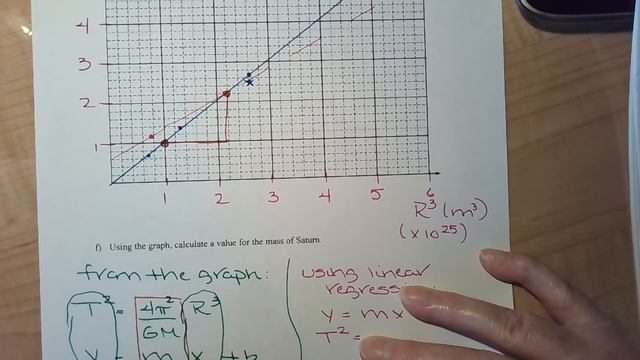 4
3
2
1
1 2 3 4 5 6
R³ (m³)
(x10²⁵)
f) Using the graph, calculate a value for the mass of Saturn.
from the graph:
T² = 4π²/GM R³
y = m x + b
using linear
y = mx
T² =